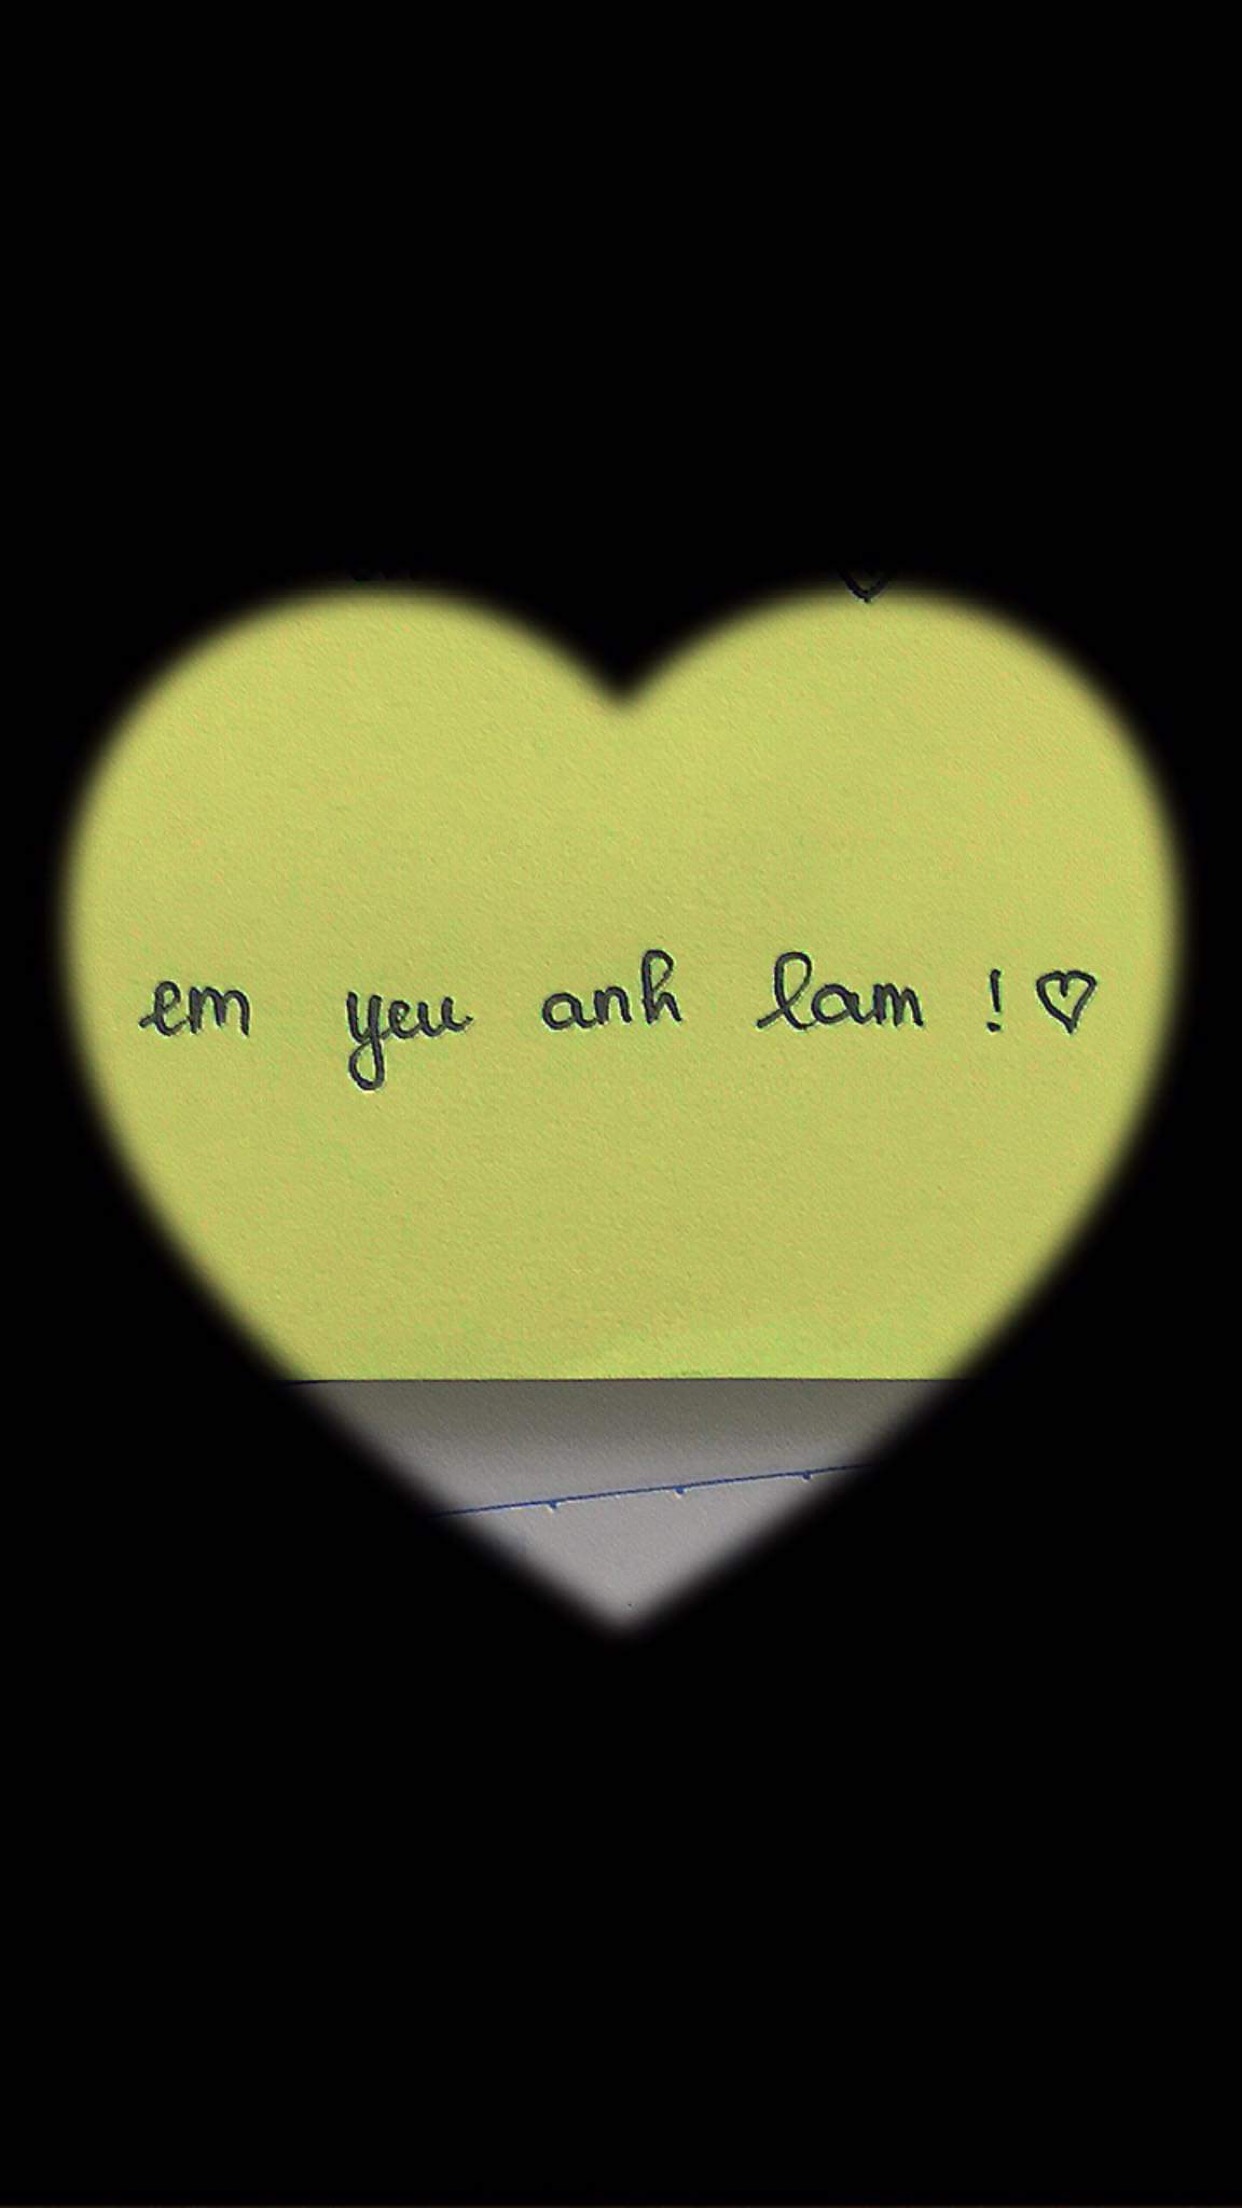 em yeu anh lam ! ♡